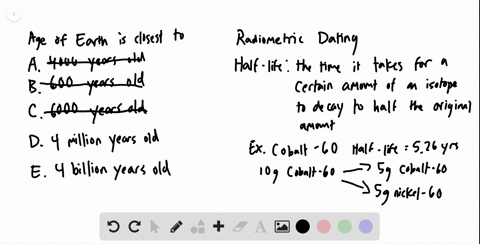 Age of Earth is closest to
A. 4000 years old
B. 600 years old
C. 6000 years old
D. 4 million years old
E. 4 billion years old
Radiometric Dating
Half-life: the time it takes for a
certain amount of an isotope
to decay to half the original
amount
Ex. Cobalt-60 Half-life = 5.26 yrs
10g Cobalt-60
5g cobalt-60
5g nickel-60